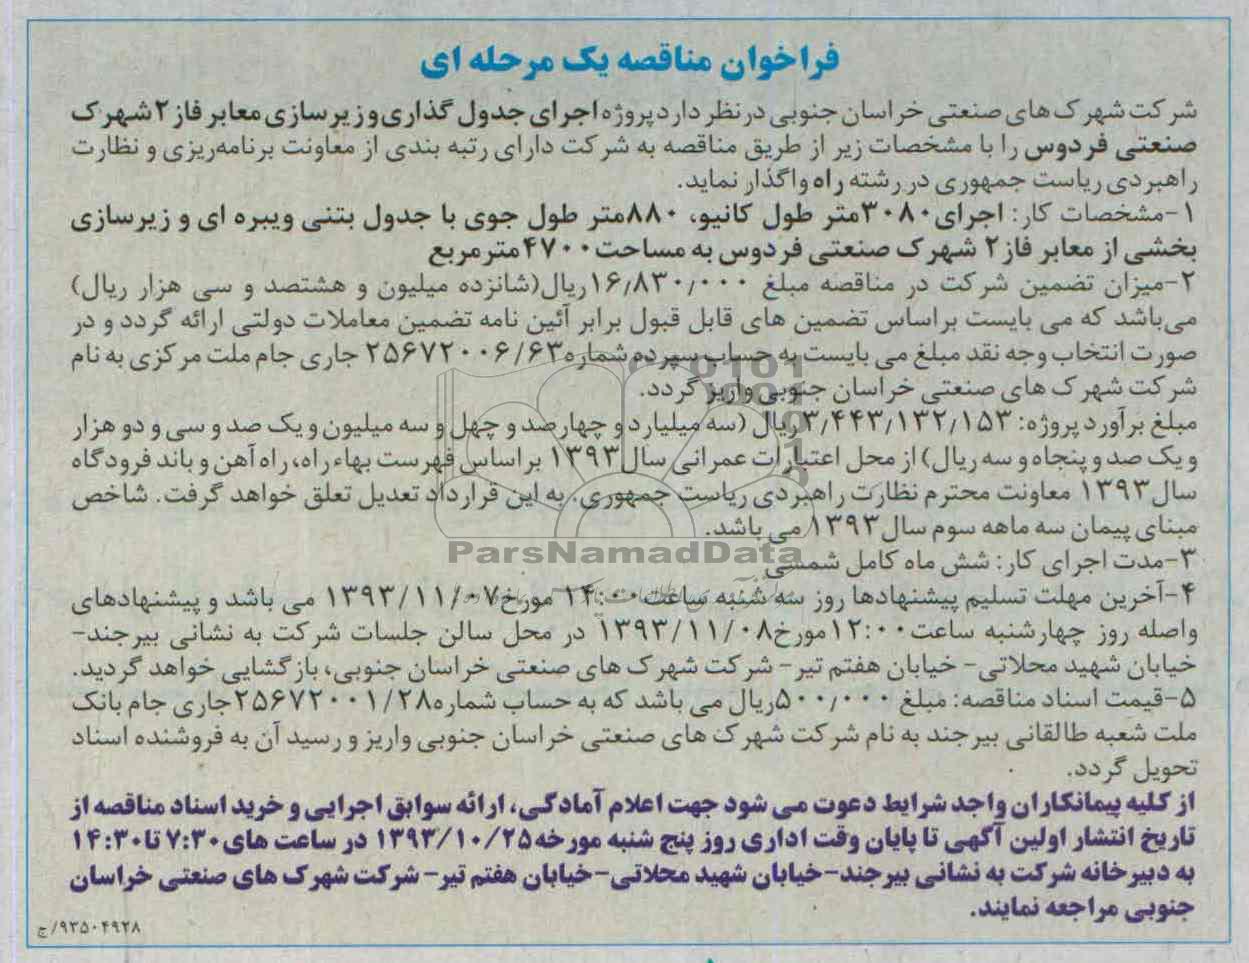 فراخوان مناقصه یک مرحله ای
شرکت شهرک های صنعتی خراسان جنوبی در نظر دارد پروژه اجرای جدول گذاری و زیرسازی معابر فاز ۲ شهرک
صنعتی فردوس را با مشخصات زیر از طریق مناقصه به شرکت دارای رتبه بندی از معاونت برنامه‌ریزی و نظارت
راهبردی ریاست جمهوری در رشته راه واگذار نماید.
۱-مشخصات کار: اجرای ۳۰۸۰متر طول کانیو، ۸۸۰متر طول جوی با جدول بتنی ویبره ای و زیرسازی
بخشی از معابر فاز۲ شهرک صنعتی فردوس به مساحت ۴۷۰۰مترمربع
۲-میزان تضمین شرکت در مناقصه مبلغ ۱۶/۸۳۰/۰۰۰ریال(شانزده میلیون و هشتصد و سی هزار ریال)
می‌باشد که می بایست براساس تضمین های قابل قبول برابر آئین نامه تضمین معاملات دولتی ارائه گردد و در
صورت انتخاب وجه نقد مبلغ می بایست به حساب سپرده شماره ۲۵۶۷۲۰۰۶/۶۳ جاری جام ملت مرکزی به نام
شرکت شهرک های صنعتی خراسان جنوبی واریز گردد.
مبلغ برآورد پروژه: ۳/۴۴۳/۱۳۲/۱۵۳ریال (سه میلیارد و چهارصد و چهل و سه میلیون و یک صد و سی و دو هزار
و یک صد و پنجاه و سه ریال) از محل اعتبارات عمرانی سال ۱۳۹۳ براساس فهرست بهاء راه، راه آهن و باند فرودگاه
سال ۱۳۹۳ معاونت محترم نظارت راهبردی ریاست جمهوری. به این قرارداد تعدیل تعلق خواهد گرفت. شاخص
مبنای پیمان سه ماهه سوم سال ۱۳۹۳ می باشد.
ParsNamadData
۳-مدت اجرای کار: شش ماه کامل شمسی
۴-آخرین مهلت تسلیم پیشنهادها روز سه شنبه ساعت ۱۴:۰۰ مورخ ۱۳۹۳/۱۱/۰۷ می باشد و پیشنهادهای
واصله روز چهارشنبه ساعت ۱۲:۰۰مورخ ۱۳۹۳/۱۱/۰۸ در محل سالن جلسات شرکت به نشانی بیرجند-
خیابان شهید محلاتی- خیابان هفتم تیر- شرکت شهرک های صنعتی خراسان جنوبی، بازگشایی خواهد گردید.
۵-قیمت اسناد مناقصه: مبلغ ۵۰۰/۰۰۰ریال می باشد که به حساب شماره ۲۵۶۷۲۰۰۱/۲۸جاری جام بانک
ملت شعبه طالقانی بیرجند به نام شرکت شهرک های صنعتی خراسان جنوبی واریز و رسید آن به فروشنده اسناد
تحویل گردد.
از کلیه پیمانکاران واجد شرایط دعوت می شود جهت اعلام آمادگی، ارائه سوابق اجرایی و خرید اسناد مناقصه از
تاریخ انتشار اولین آگهی تا پایان وقت اداری روز پنج شنبه مورخه ۱۳۹۳/۱۰/۲۵ در ساعت های ۷:۳۰ تا ۱۴:۳۰
به دبیرخانه شرکت به نشانی بیرجند-خیابان شهید محلاتی-خیابان هفتم تیر- شرکت شهرک های صنعتی خراسان
جنوبی مراجعه نمایند.
۹۳۵۰۴۹۲۸/ج